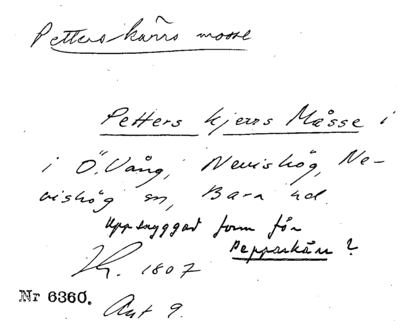 Petterskärrs mosse
Petters kjerrs Måsse i
i Ö. Vång, Nevishög, Ne-
vishög sn, Bara hd.
Uppsnyggad form för
Pepparkärr?
Lk. 1807
Nr 6360.
Akt 9.